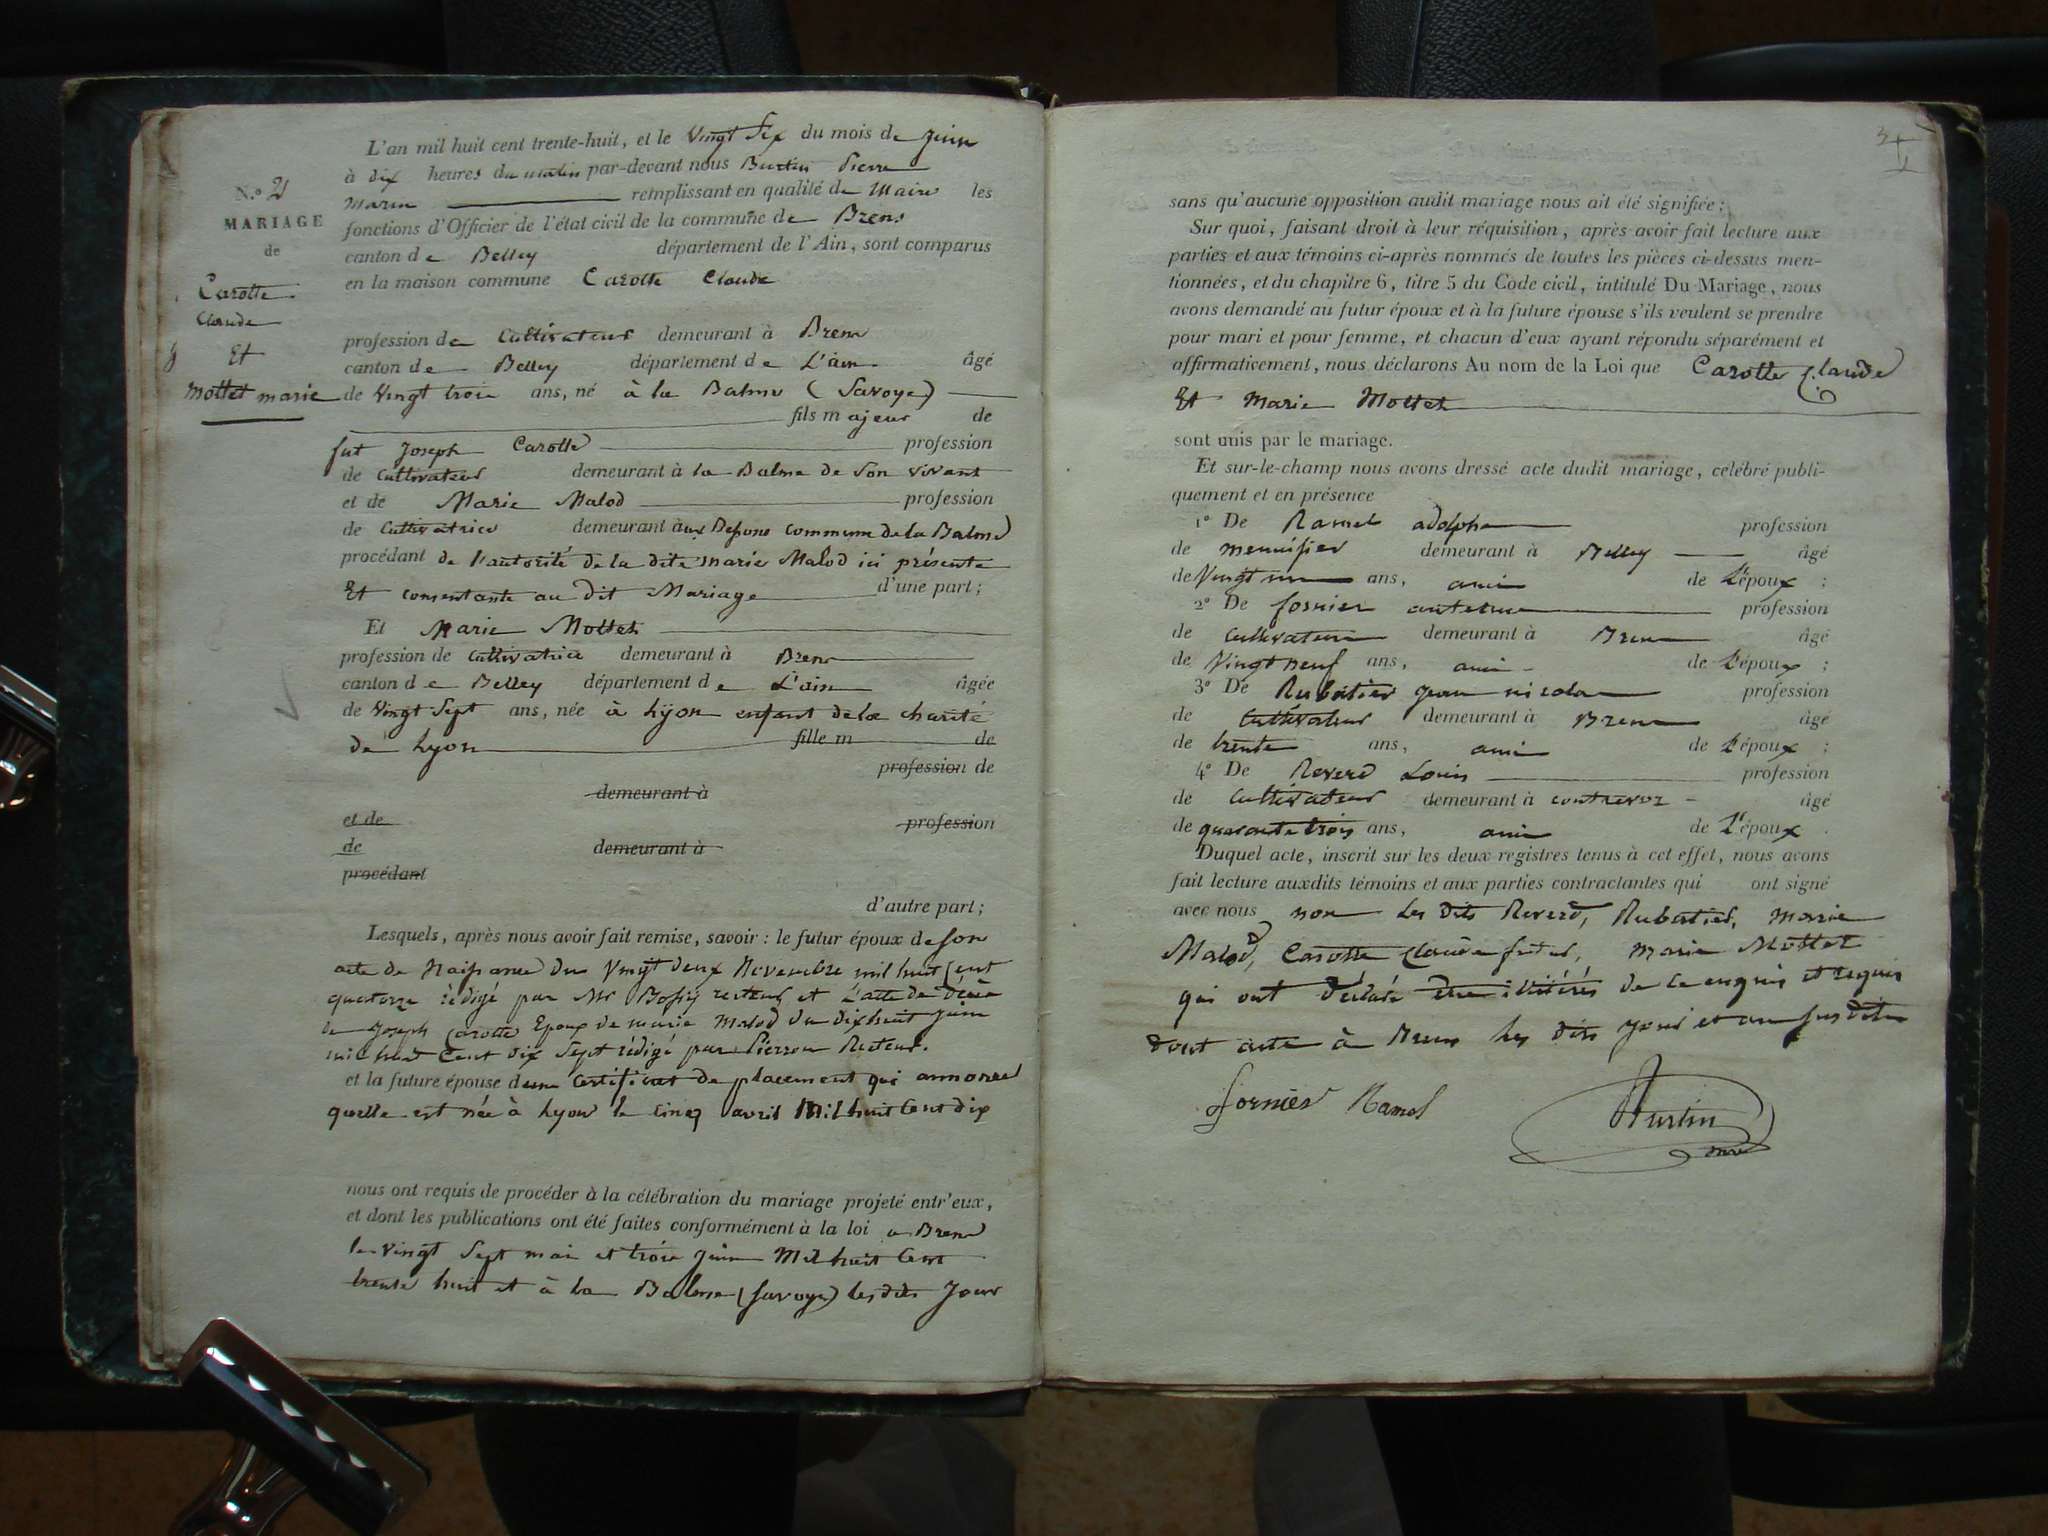 L'an mil huit cent trente-huit, et le Vingt Six du mois de juin
à dix heures du matin par-devant nous Burtin Pierre
Marin remplissant en qualité de Maire les
fonctions d'Officier de l'état civil de la commune de Brens
canton de Belley département de l'Ain, sont comparus
en la maison commune Carotte Claude
N.º 2
MARIAGE
de
Carotte
Claude
Et
Mottet marie
profession de Cultivateur demeurant à Brens
canton de Belley département de L'ain âgé
de Vingt trois ans, né à la Balme (Savoye)
fils majeur de
fut Joseph Carotte profession
de Cultivateur demeurant à la Balme de Son vivant
et de Marie Malod profession
de Cultivatrice demeurant aux commune de la Balme
procédant de l'autorité de la dite marie Malod ici présente
Et consentante au dit Mariage d'une part;
Et Marie Mottet
profession de Cultivatrice demeurant à Brens
canton de Belley département de L'ain âgée
de Vingt Sept ans, née à Lyon enfant de la charité
de Lyon fille m de
profession de
demeurant à
et de profession
de demeurant à
procédant
d'autre part;
Lesquels, après nous avoir fait remise, savoir : le futur époux de son
acte de Naissance du Vingt deux Novembre mil huit Cent
quatorze rédigé par Mr Bossy recteur et L'acte de décès
de Joseph Carotte Epoux de marie Malod du dixhuit juin
mil huit Cent dix Sept rédigé par Pierron Recteur.
et la future épouse d'une Certificat de placement qui annonce
quelle est née à Lyon le cinq avril Mil huit Cent dix
nous ont requis de procéder à la célébration du mariage projeté entr'eux,
et dont les publications ont été faites conformément à la loi a Brens
le Vingt Sept mai et trois juin Mil huit Cent
trente huit et à La Balme (Savoye) les dits Jour
sans qu'aucune opposition audit mariage nous ait été signifiée;
Sur quoi, faisant droit à leur réquisition, après avoir fait lecture aux
parties et aux témoins ci-après nommés de toutes les pièces ci-dessus men-
tionnées, et du chapitre 6, titre 5 du Code civil, intitulé Du Mariage, nous
avons demandé au futur époux et à la future épouse s'ils veulent se prendre
pour mari et pour femme, et chacun d'eux ayant répondu séparément et
affirmativement, nous déclarons Au nom de la Loi que Carotte Claude
Et Marie Mottet
sont unis par le mariage.
Et sur-le-champ nous avons dressé acte dudit mariage, célébré publi-
quement et en présence
1º De Ramel adolphe profession
de menuisier demeurant à Belley âgé
de Vingt un ans, ami de L'époux ;
2º De fornier profession
de Cultivateur demeurant à Brens âgé
de Vingt neuf ans, ami de L'époux ;
3º De Rubatier jean nicolas profession
de Cultivateur demeurant à Brens âgé
de trente ans, ami de L'époux ;
4º De Reverd Louis profession
de Cultivateur demeurant à contrevoz âgé
de quarante trois ans, ami de L'époux.
Duquel acte, inscrit sur les deux registres tenus à cet effet, nous avons
fait lecture auxdits témoins et aux parties contractantes qui ont signé
avec nous non Les dits Reverd, Rubatier, marie
Malod, Carotte Claude futur, Marie Mottet
qui ont déclaré être illitérés de ce enquis et requis
dont acte à Brens les dits jour et an susdits
fornier Ramel Burtin